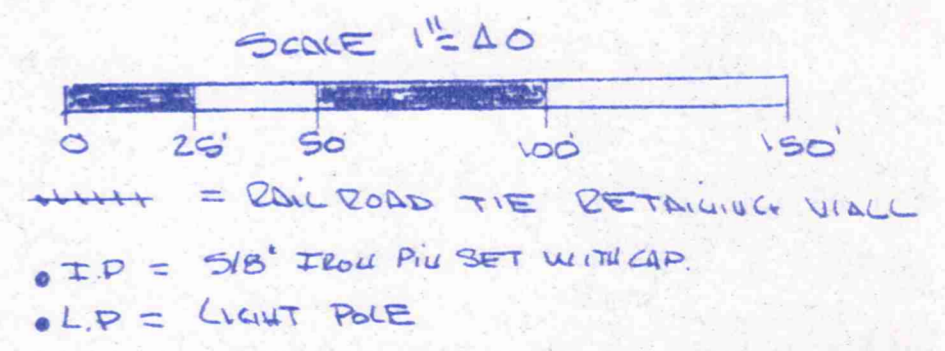 SCALE 1"= 40
0 25' 50 100' 150'
= RAILROAD TIE RETAINING WALL
I.P = 5/8" IRON PIN SET WITH CAP.
L.P = LIGHT POLE